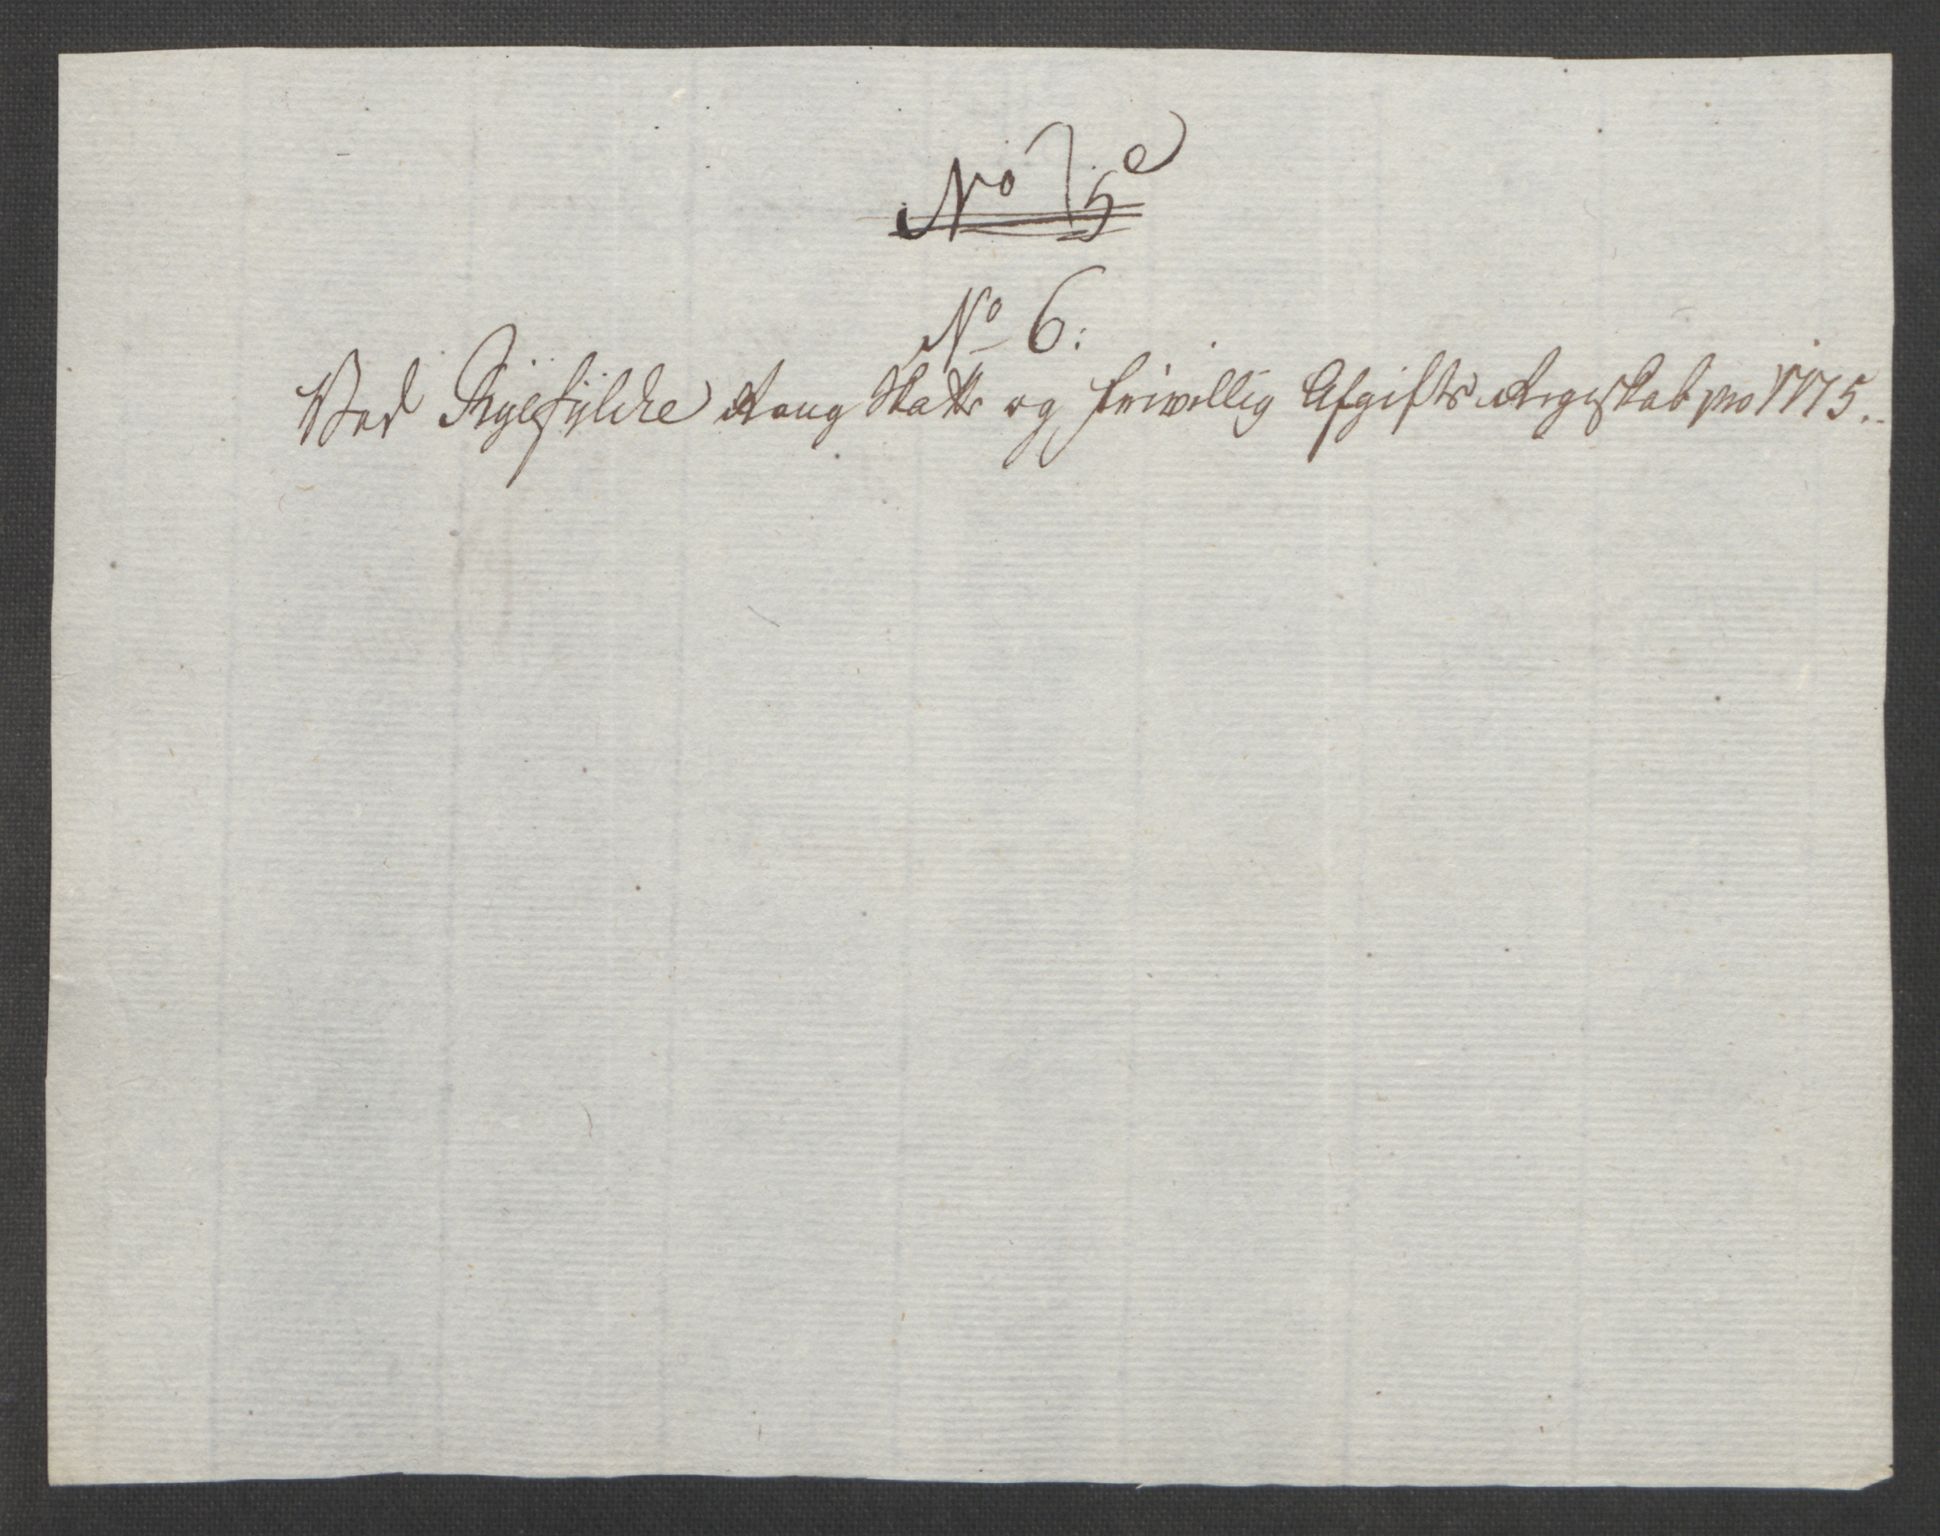 No 75e
No 6:
Ved Ryefylche Rang Skatts og friwillig Afgifts Regnskab pro 1775.